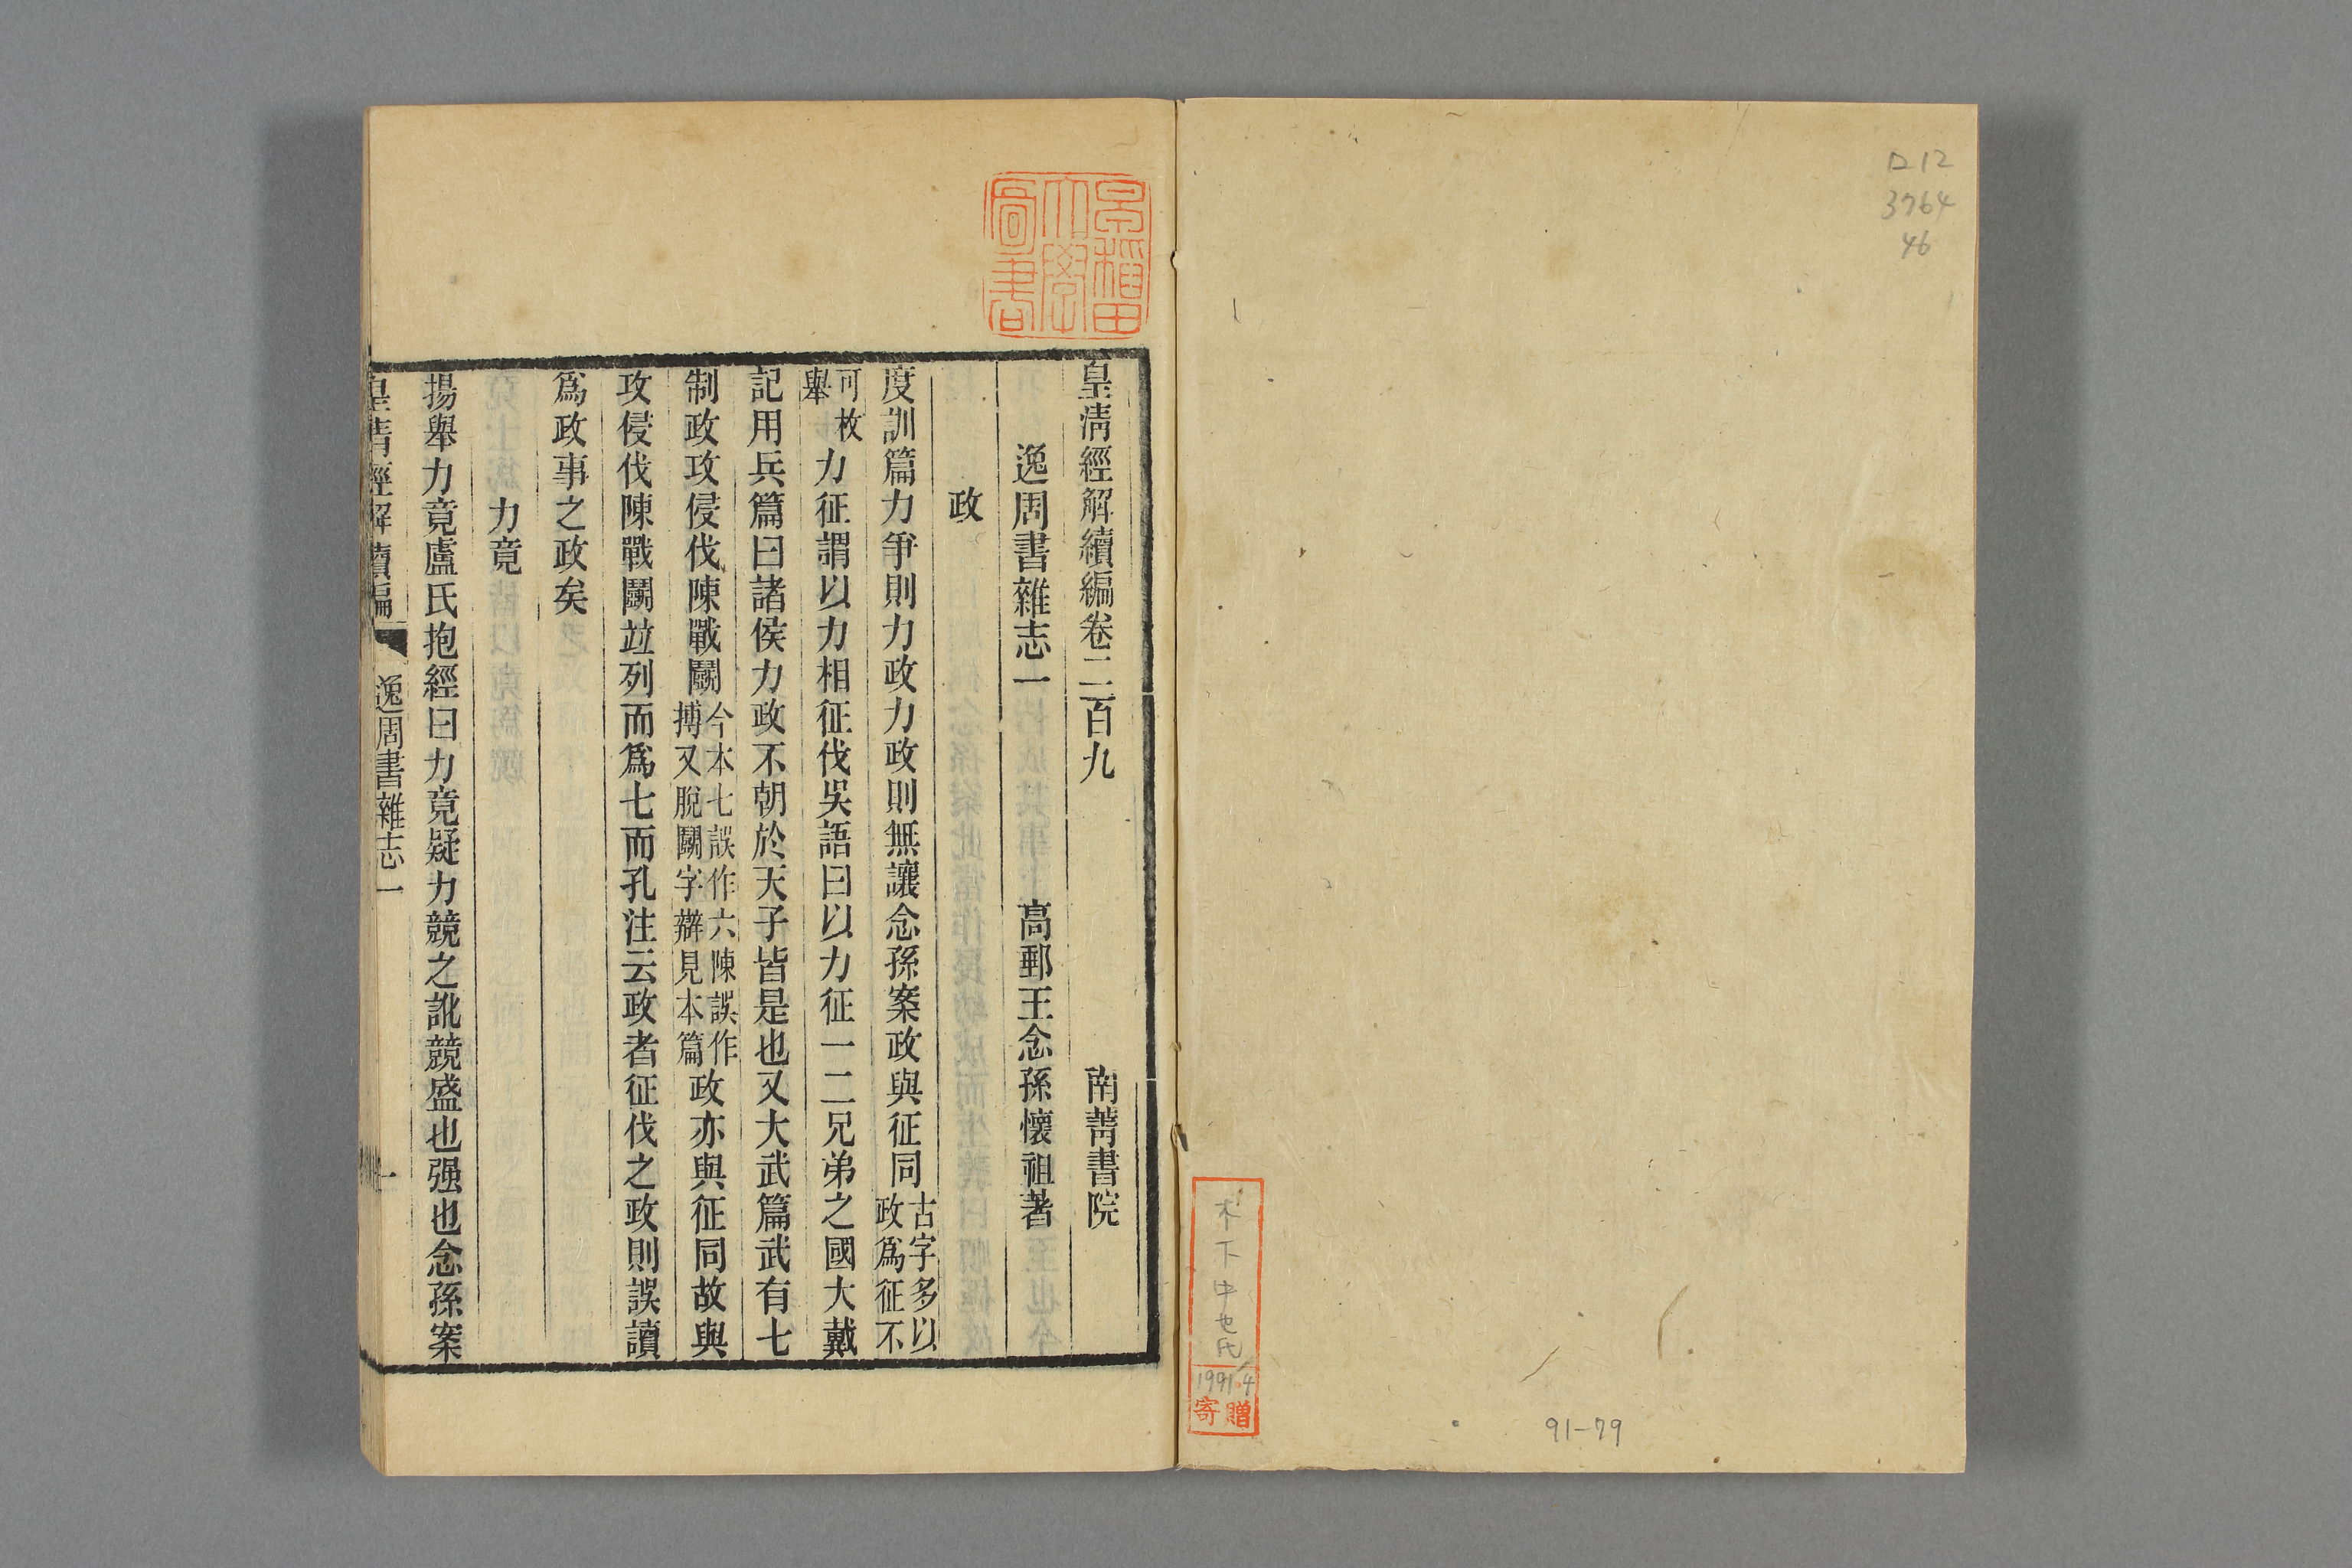 ロ12
3764
46
木下中也氏
1991.4
寄贈
91-79
早稲田
大學
圖書
皇清經解續編卷二百九 南菁書院
逸周書雜志一 高郵王念孫懷祖著
政
度訓篇力爭則力政力政則無讓念孫案政與征同古字多以政爲征不
可枚舉力征謂以力相征伐吳語曰以力征一二兄弟之國大戴
記用兵篇曰諸侯力政不朝於天子皆是也又大武篇武有七
制政攻侵伐陳戰鬭今本七誤作六陳誤作搏又脫鬭字辯見本篇政亦與征同故與
攻侵伐陳戰鬭竝列而爲七而孔注云政者征伐之政則誤讀
爲政事之政矣
力竟
揚舉力竟盧氏抱經曰力竟疑力競之訛競盛也强也念孫案
皇清經解續編 逸周書雜志一 一